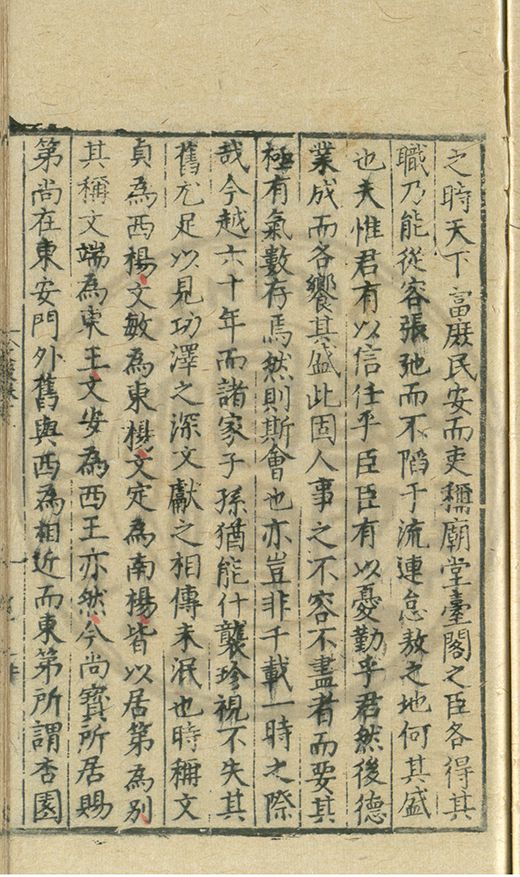 之時天下富庶民安而吏稱廟堂臺閣之臣各得其
職乃能從容張弛而不陷于流連怠敖之地何其盛
也夫惟君有以信任乎臣臣有以憂勤乎君然後德
業成而各饗其盛此固人事之不容不盡者而要其
極有氣數存焉然則斯會也亦豈非千載一時之際
哉今越六十年而諸家子孫猶能什襲珍視不失其
舊尤足以見功澤之深文獻之相傳未泯也時稱文
貞為西楊文敏為東楊文定為南楊皆以居第為別
其稱文端為東王文安為西王亦然今尚寶所居賜
第尚在東安門外舊與西為相近而東第所謂杏園